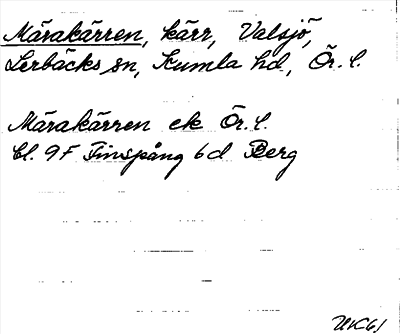 Märakärren, kärr, Valsjö,
Lerbäcks sn, Kumla hd, Ör. l.
Märakärren ek Ör. l.
bl. 9F Finspång 6d Berg